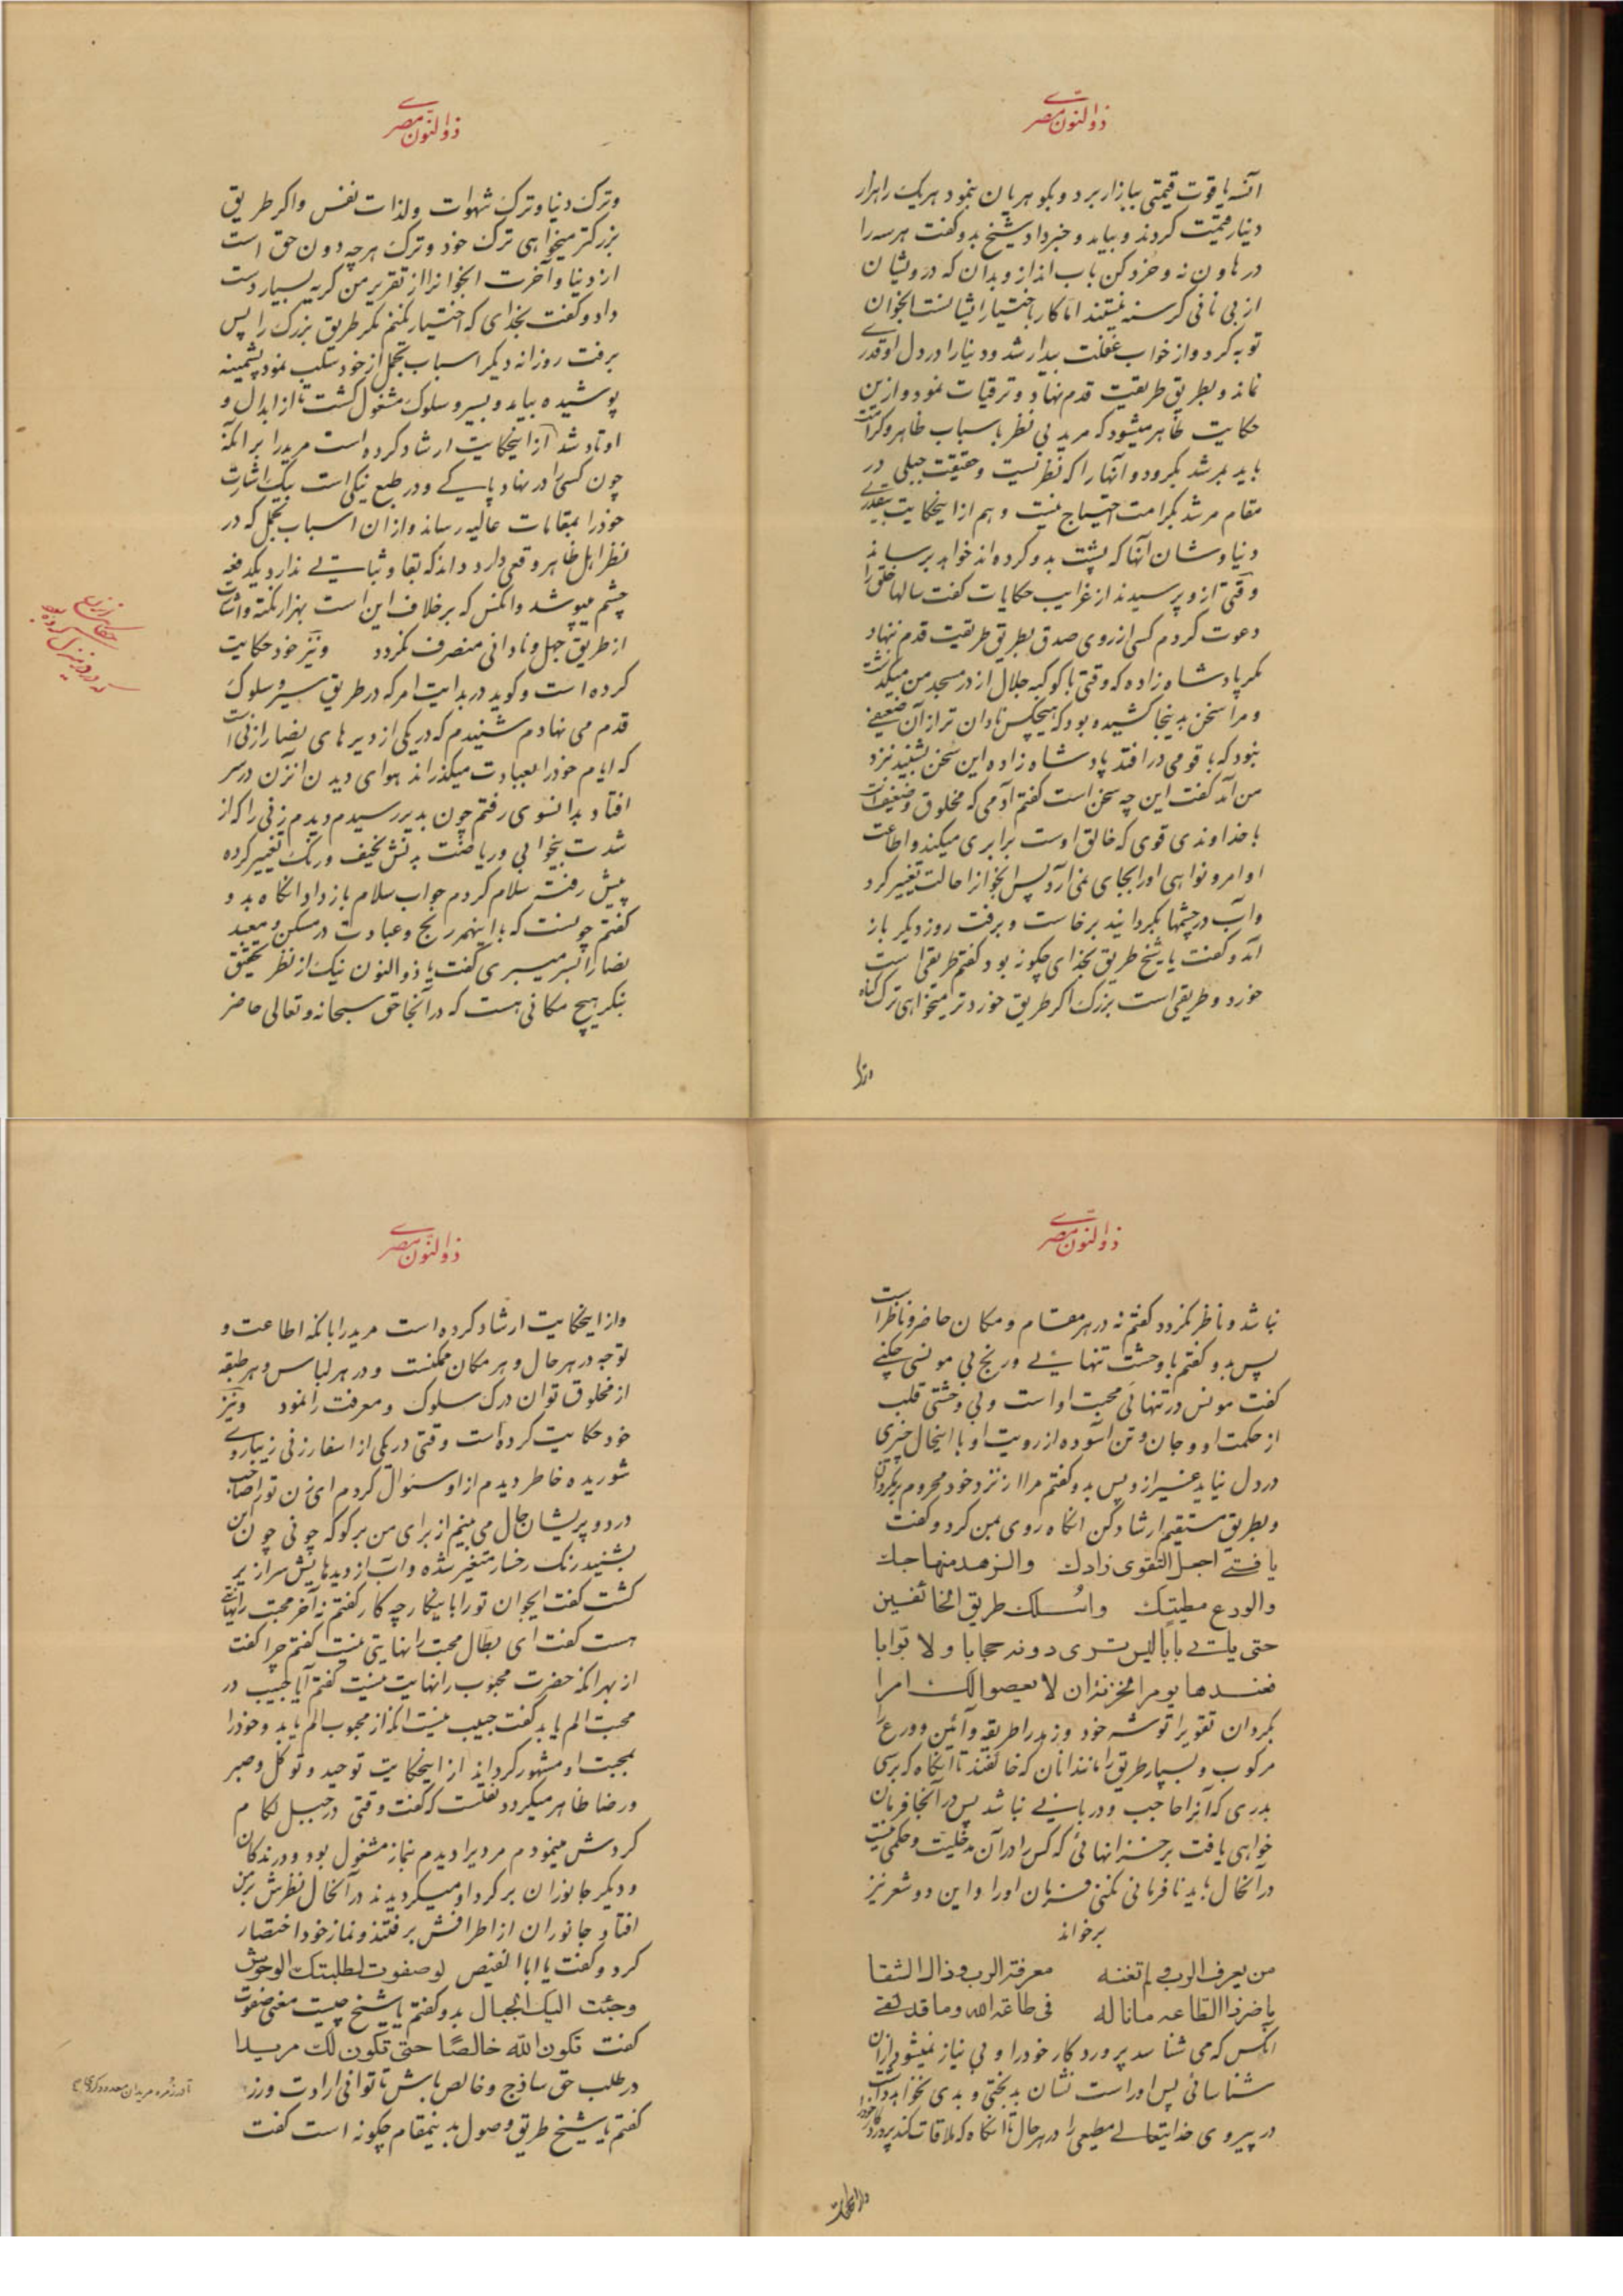 ذوالنون مصری
آنسه یاقوت قیمتی ببازار برد و بکوهریان بنمود هریک را هزار
دینار قیمت کردند و بیامد و خبر داد شیخ بدو کفت هر سه را
در هاون نه و خرد کن بآب انداز و بدان که درویشان
از بی نانی کرسنه نیستند اما کار باختیار ایشانست انجوان
توبه کرد و از خواب غفلت بیدار شد و دنیا را در دل او قدری
نماند و بطریق طریقت قدم نهاد و ترقیات نمود و ازین
حکایت ظاهر میشود که مرید بی نظر باسباب ظاهر و کرامت
باید بمرشد بکرود و آنها را که نظر نیست و حقیقت جبلی در
مقام مرشد بکرامت احتیاج نیست و هم از اینحکایت بیقدری
دنیا و شان آنها که پشت بدو کرده‌اند خواهد برساند
وقتی ازو پرسیدند از غرایب حکایات کفت سالها خلق را
دعوت کردم کسی از روی صدق بطریق طریقت قدم ننهاد
مکر پادشاه زاده که وقتی با کوکبه جلال از در مسجد من میکذشت
و مرا سخن بدینجا کشیده بود که هیچکس نادان تر از آن ضعیفی
نبود که با قومی در افتد پادشاه زاده این سخن بشنید نزد
من آمد کفت این چه سخن است کفتم آدمی که مخلوق و ضعیف است
با خداوندی قوی که خالق اوست برابری میکند و اطاعت
اوامر و نواهی او را بجای نمی‌آرد پس انجوانرا حالت تغییر کرد
و آب در چشمها بکردانید برخاست و برفت روز دیکر باز
آمد و کفت یا شیخ طریق بخدای چکونه بود کفتم طریقی است
خورد و طریقی است بزرک اکر طریق خوردتر میخواهی ترک کناه
وترک
ذوالنون مصری
و ترک دنیا و ترک شهوات ولذات نفس و اکر طریق
بزرکتر میخواهی ترک خود و ترک هرچه دون حق است
از دنیا و آخرت انجوانرا از تقریر من کریه بسیار دست
داد و کفت بخدای که اختیار نکنم مکر طریق بزرک را پس
برفت روزانه دیکر اسباب تجمل از خود سلب نمود پشمینه
پوشیده بیامد و بسیر و سلوک مشغول کشت تا از ابدال و
اوتاد شد از اینحکایت ارشاد کرده است مرید را بر آنکه
چون کسی را در نهاد پاکی و در طبع نیکی است بیک اشارت
خود را بمقامات عالیه رساند و از ان اسباب تجمل که در
نظر اهل ظاهر وقعی دارد و داند که بقا و ثباتی ندارد یکدفعه
چشم میپوشد و انکس که بر خلاف این است بهزار نکته و اشارت
از طریق جهل و نادانی منصرف نکردد و نیز خود حکایت
کرده است و کوید در بدایت امر که در طریق سیر و سلوک
قدم می نهادم شنیدم که در یکی از دیرهای نصارا زنی است
که ایام خود را بعبادت میکذراند هوای دیدن انزن در سر
افتاد بدانسوی رفتم چون بدیر رسیدم دیدم زنی را که از
شدت بیخوابی و ریاضت بدنش نحیف و رنک تغییر کرده
پیش رفته سلام کردم جواب سلام باز داد انکاه بدو
کفتم چونست که با اینهمه رنج و عبادت در مسکن و معبد
نصارا بسر میبری کفت یا ذوالنون نیک از نظر تحقیق
بنکر هیچ مکانی هست که در آنجا حق سبحانه و تعالی حاضر
ذوالنون مصری
نباشد و ناظر نکردد کفتم نه در هر مقام و مکان حاضر و ناظر است
پس بدو کفتم با وحشت تنهائی و رنج بی مونسی چکنی
کفت مونس در تنهائی محبت او است و بی وحشتی قلب
از حکمت او و جان و تن آسوده از رویت او با اینحال چیزی
در دل نیاید غیر ازو پس بدو کفتم مرا از نزد خود محروم برمکردان
و بطریق مستقیم ارشاد کن انکاه روی بمن کرد و کفت
یا فتی اجعل التقوی زادك والزهد منهاجك
والورع مطیتك واسلك طریق الخائفین
حتی یاتی بابا لیس تری دونه حجابا ولا بوابا
فعندها یومر الخزنه ان لا یعصوا لك امرا
بکردان تقوی را توشه خود و زهد را طریقه و آئین و ورع را
مرکوب و بسپار طریق را مانند انان که خائفند تا انکاه که برسی
بدری که آنرا حاجب و دربانی نباشد پس در آنجا فرمان
خواهی یافت بر خزانهائی که کس را در آن مدخلیت و حکمی نیست
در آنحال باید نافرمانی نکنی فرمان او را و این دو شعر نیز
برخواند
من یعرف الرب ولم تغنه معرفة الرب وذاك الشقا
ما ضر ذا الطاعه ما ناله فی طاعة الله وما قد لقی
انکس که می شناسد پروردکار خود را و بی نیاز نمیشود از ان
شناسائی پس او راست نشان بدبختی و بدی نخواهد داشت
در پیروی خدایتعالی مطیعی را در هر حال تا انکاه که ملاقات کند پروردکار خود را
ذوالنون مصری
و از اینحکایت ارشاد کرده است مرید را بانکه اطاعت و
توجه در هر حال و هر مکان ممکنست و در هر لباس و هر طبقه
از مخلوق توان درک سلوک و معرفت را نمود و نیز
خود حکایت کرده است وقتی در یکی از اسفار زنی زیبا روی
شوریده خاطر دیدم از او سئوال کردم ای زن تو را صاحب
درد و پریشان حال می بینم از برای من برکو که چونی چون این
بشنید رنک رخسار متغیر شده و آب از دیدهایش سرازیر
کشت کفت ایجوان تو را با اینکار چه کار کفتم نه آخر محبت را نهایتی
هست کفت ای بطال محبت را نهایتی نیست کفتم چرا کفت
از بهر انکه حضرت محبوب را نهایت نیست کفتم آیا حبیب در
محبت الم یابد کفت حبیب نیست انکه از محبوب الم یابد و خود را
بمحبت او مشهور کرداند از اینحکایت توحید و توکل و صبر
و رضا ظاهر میکردد نقلست که کفت وقتی در جبل لکام
کردش مینمودم مردیرا دیدم بنماز مشغول بود و درندکان
و دیکر جانوران بر کرد او میکردیدند در آنحال نظرش بر من
افتاد جانوران از اطرافش برفتند و نماز خود اختصار
کرد و کفت یا ابا الفیض لو صفوت لطلبتك الوحوش
وجئت الیك الجبال بدو کفتم یا شیخ چیست معنی صفوت
کفت تکون لله خالصًا حتی تکون لك مریدا
در طلب حق ساذج و خالص باش تا توانی ارادت ورز
کفتم یا شیخ طریق وصول بدینمقام چکونه است کفت